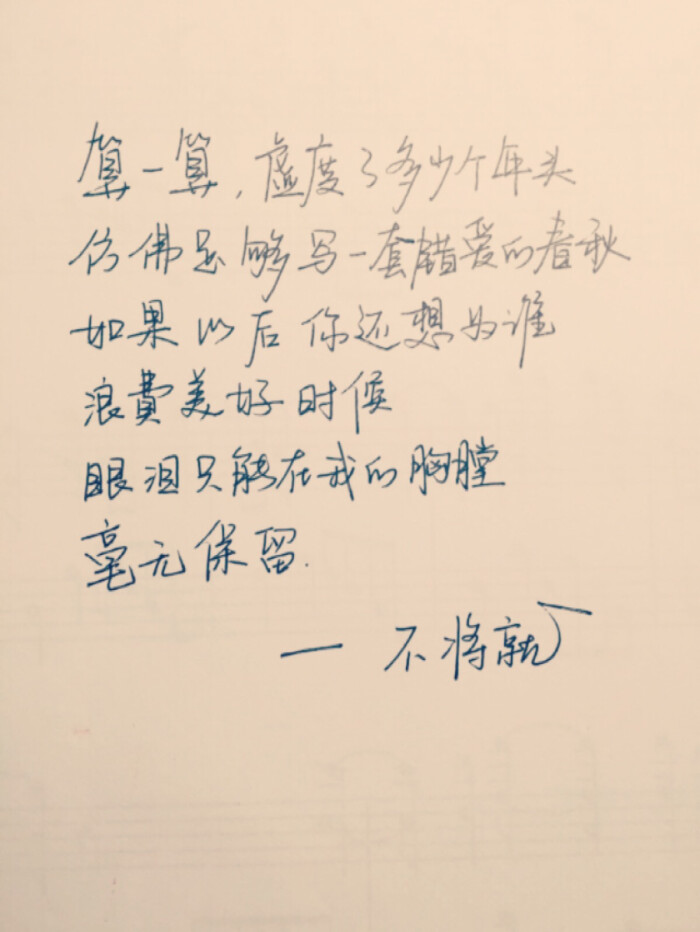 算一算，虚度了多少个年头
仿佛足够写一套错爱的春秋
如果以后你还想为谁
浪費美好时候
眼泪只能在我的胸膛
毫无保留.
— 不将就